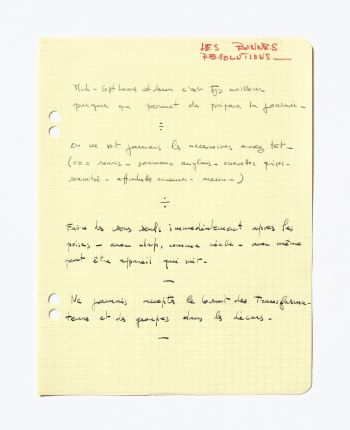 LES BONNES
RESOLUTIONS _
Midi - sept heures et demi c'est meilleur
puisque ça permet de préparer la journée _
÷
On ne voit jamais les accessoires assez tôt _
(ex =
sécurité -
÷
Faire les sons seuls immédiatement après les
prises - avec clap, comme réelle - avec même
peut être appareil qui suit _
—
Ne jamais accepter le bruit des transforma-
teurs et des groupes dans les décors _
—